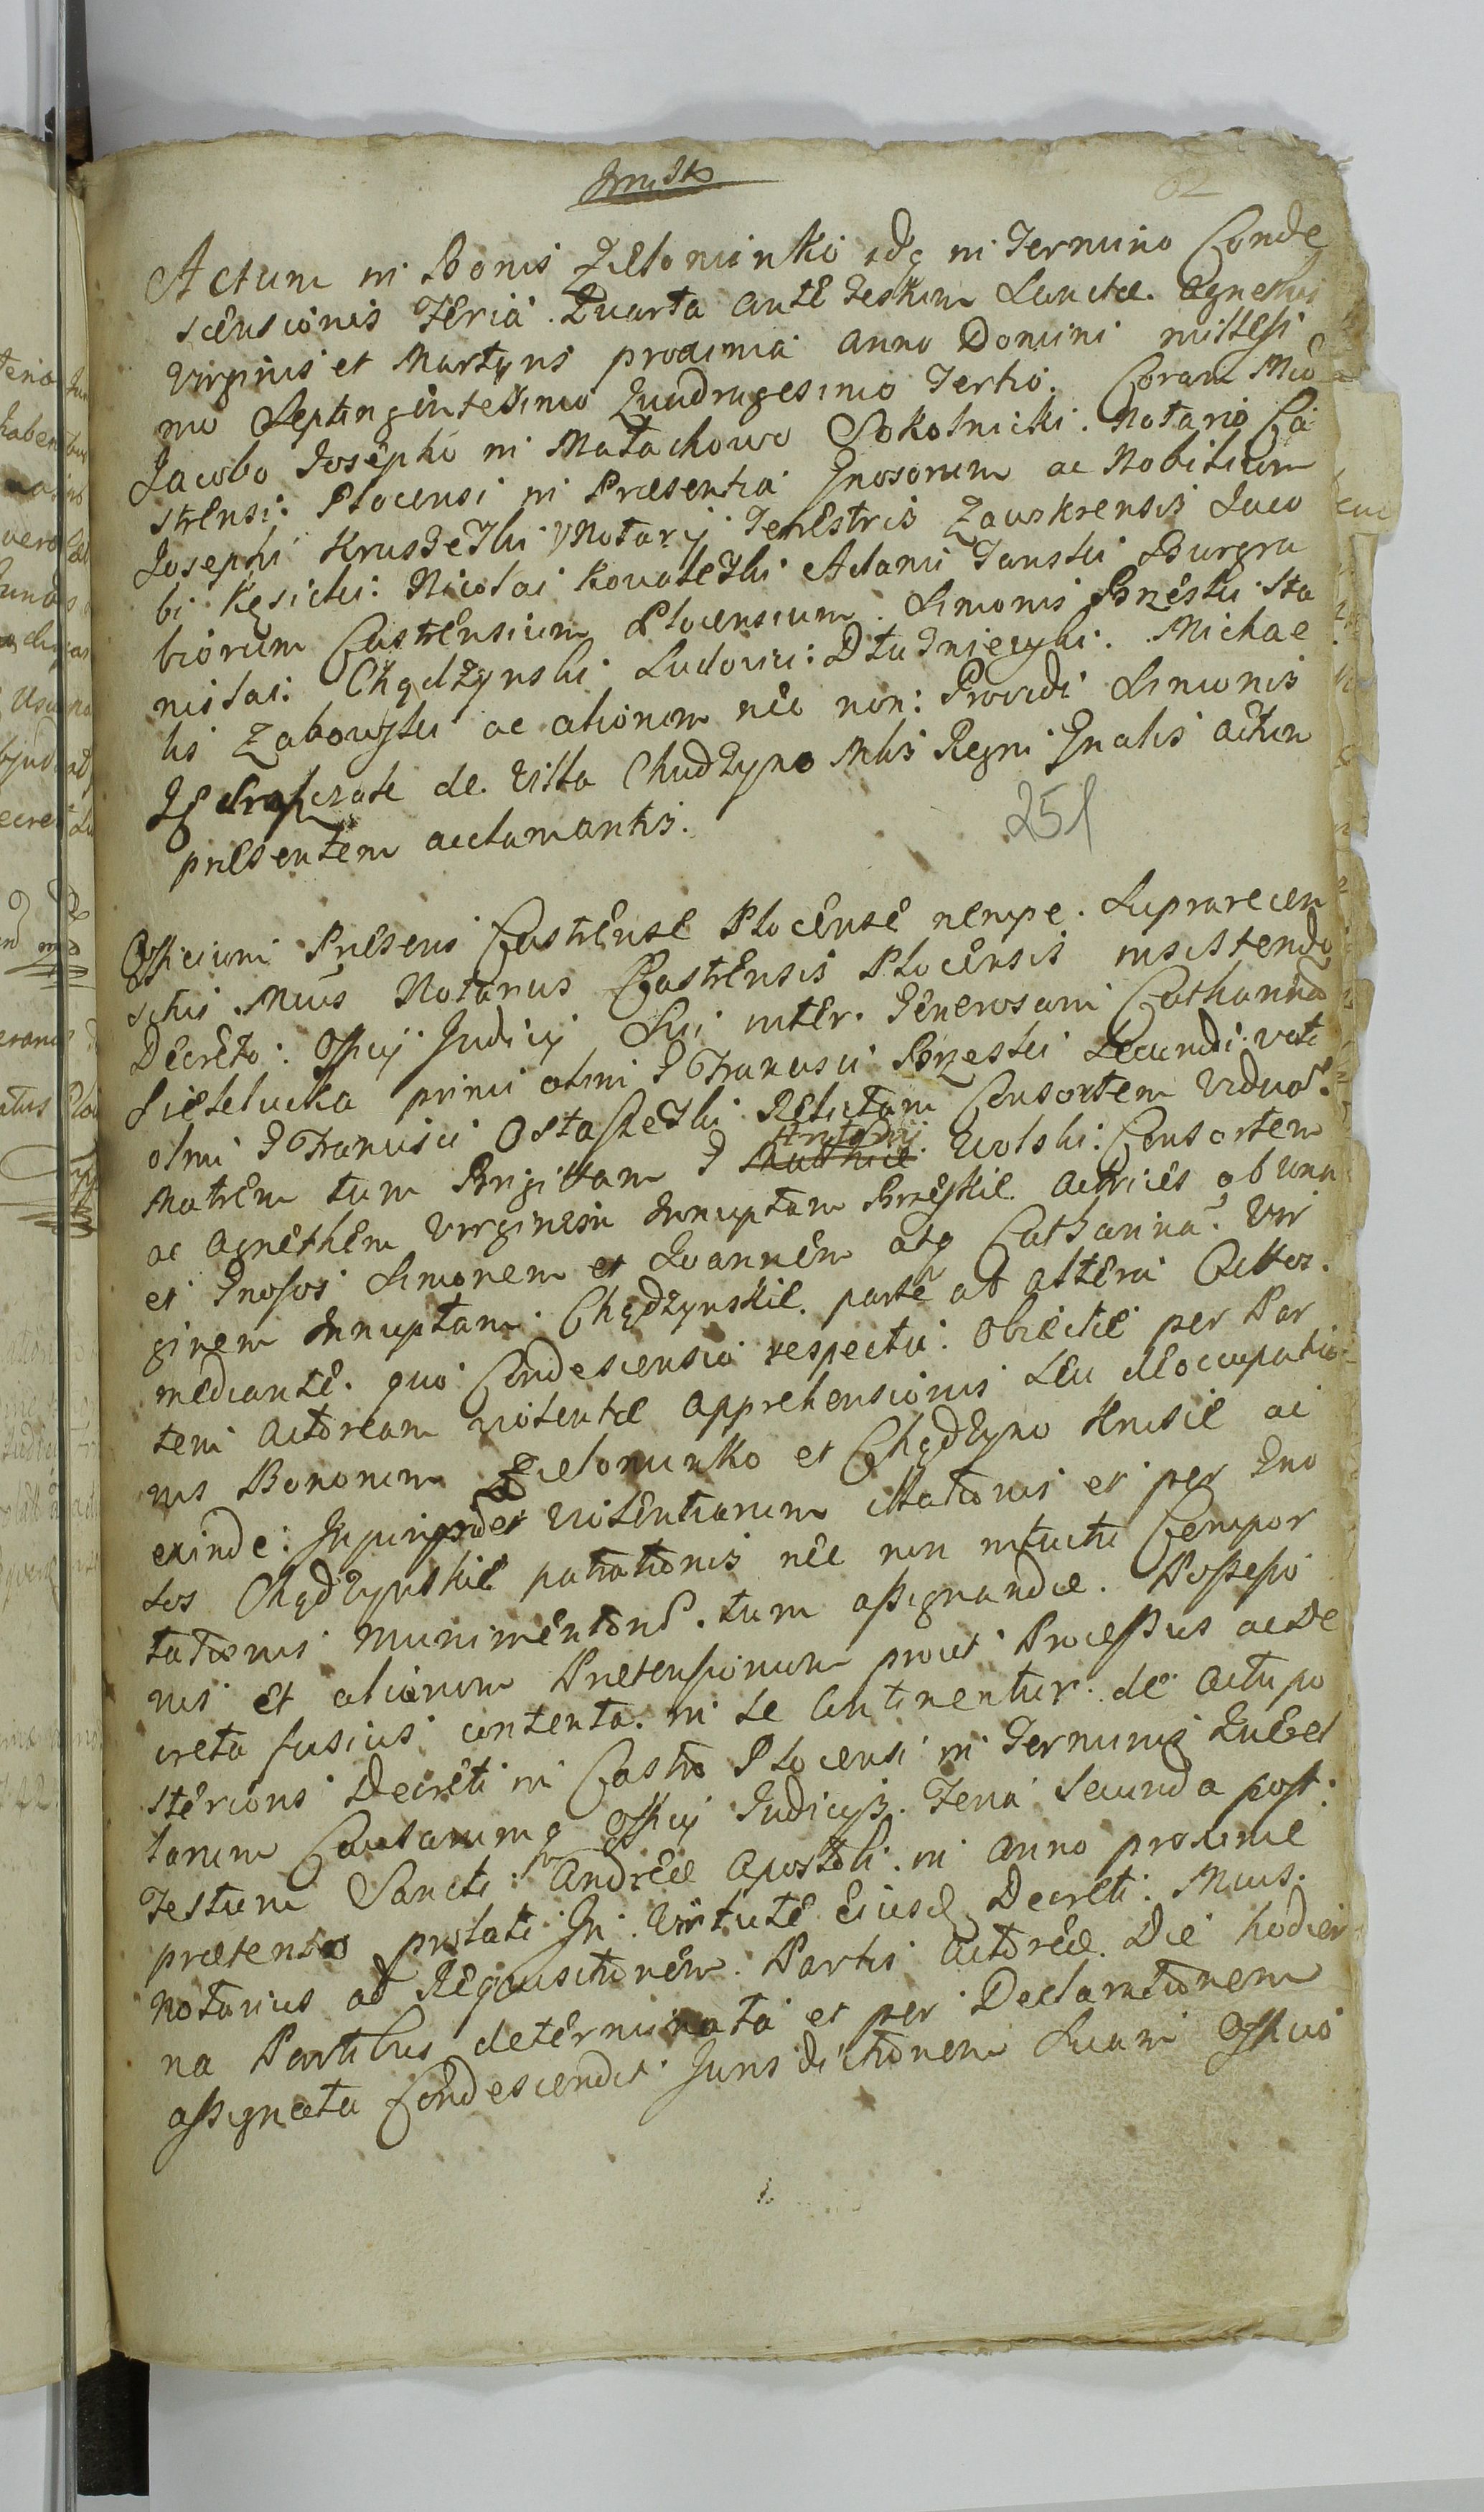 62
Actum in Bonis Zielominko idq in Termino Conde
scensionis Feria Quarta ante Festum Sanctae Agnetis
Virginis et Martyris proxima Anno Domini millesi
mo Septingentesimo Quadragesimo Tertio. Coram Mco
Jacobo Josepho in Małachowo Sokolnicki Notario Ca
strensi Plocensi in Praesentia Gnosorum ac Nobilium
Josephi Notarij Terrestris Zawskrensis Jaco
bi Kęsicki Nicolai Adami Burgra
biorum Castrensium Plocensium Simonis Brzeski Sta
nislai Chądzynski Ludovici Michae
lis Zabowski ac aliorum nec non Providi Simonis
de Villa Chudzyno Mlis Regni Gnalis actum
presentem acclamantis.
251
Officium Presens Castrense Plocense nempe Suprarecen
sitis Mcus Notarius Castrensis Plocensis insistendo
Decreto Officij Judicij Sui inter Generosam Catharina
primi olim G Francisci Brzeski Secundi voti
olim G Francisci Relictam Consortem Viduam
Matrem tum Brigittam G Antonij Wolski Consortem
ac Agnethem Virginem Innuptam Brzeskie Actrices ab una
et Gnosos Simonem et Joannem atq Catharina Vir
ginem Innuptam Chądzynskie parte ab altera Cittos
mediante quo Condescensio respectu Obiectae per Par
tem Actoream violentae Apprehensionis seu deoccupatio
nis Bonorum Zielominko et Chądzyno Krusie ac
exinde violentiarum illationis et per Gno
sos Chądzynskie patrationis nec non intuitu Compor
tationis munimentorum tum assignandae Possessio
nis et aliarum Pretensionum prout Processus ac De
creta fusius contenta in se continentur de actu po
sterioris Decreti in Castro Plocensi in Terminis Querel
larum Causarumq Officij Judicijs Feria Secunda post
Festum Sancti Andreae Apostoli in anno proxime
praeterito prolati In Virtute Eiusd Decreti Mcus
Notarius ad Requisitionem Partis Actoreae Die hodier
na Partibus determinata et per Declarationem
assignata Condescendit Jurisdictionem Suam Officio